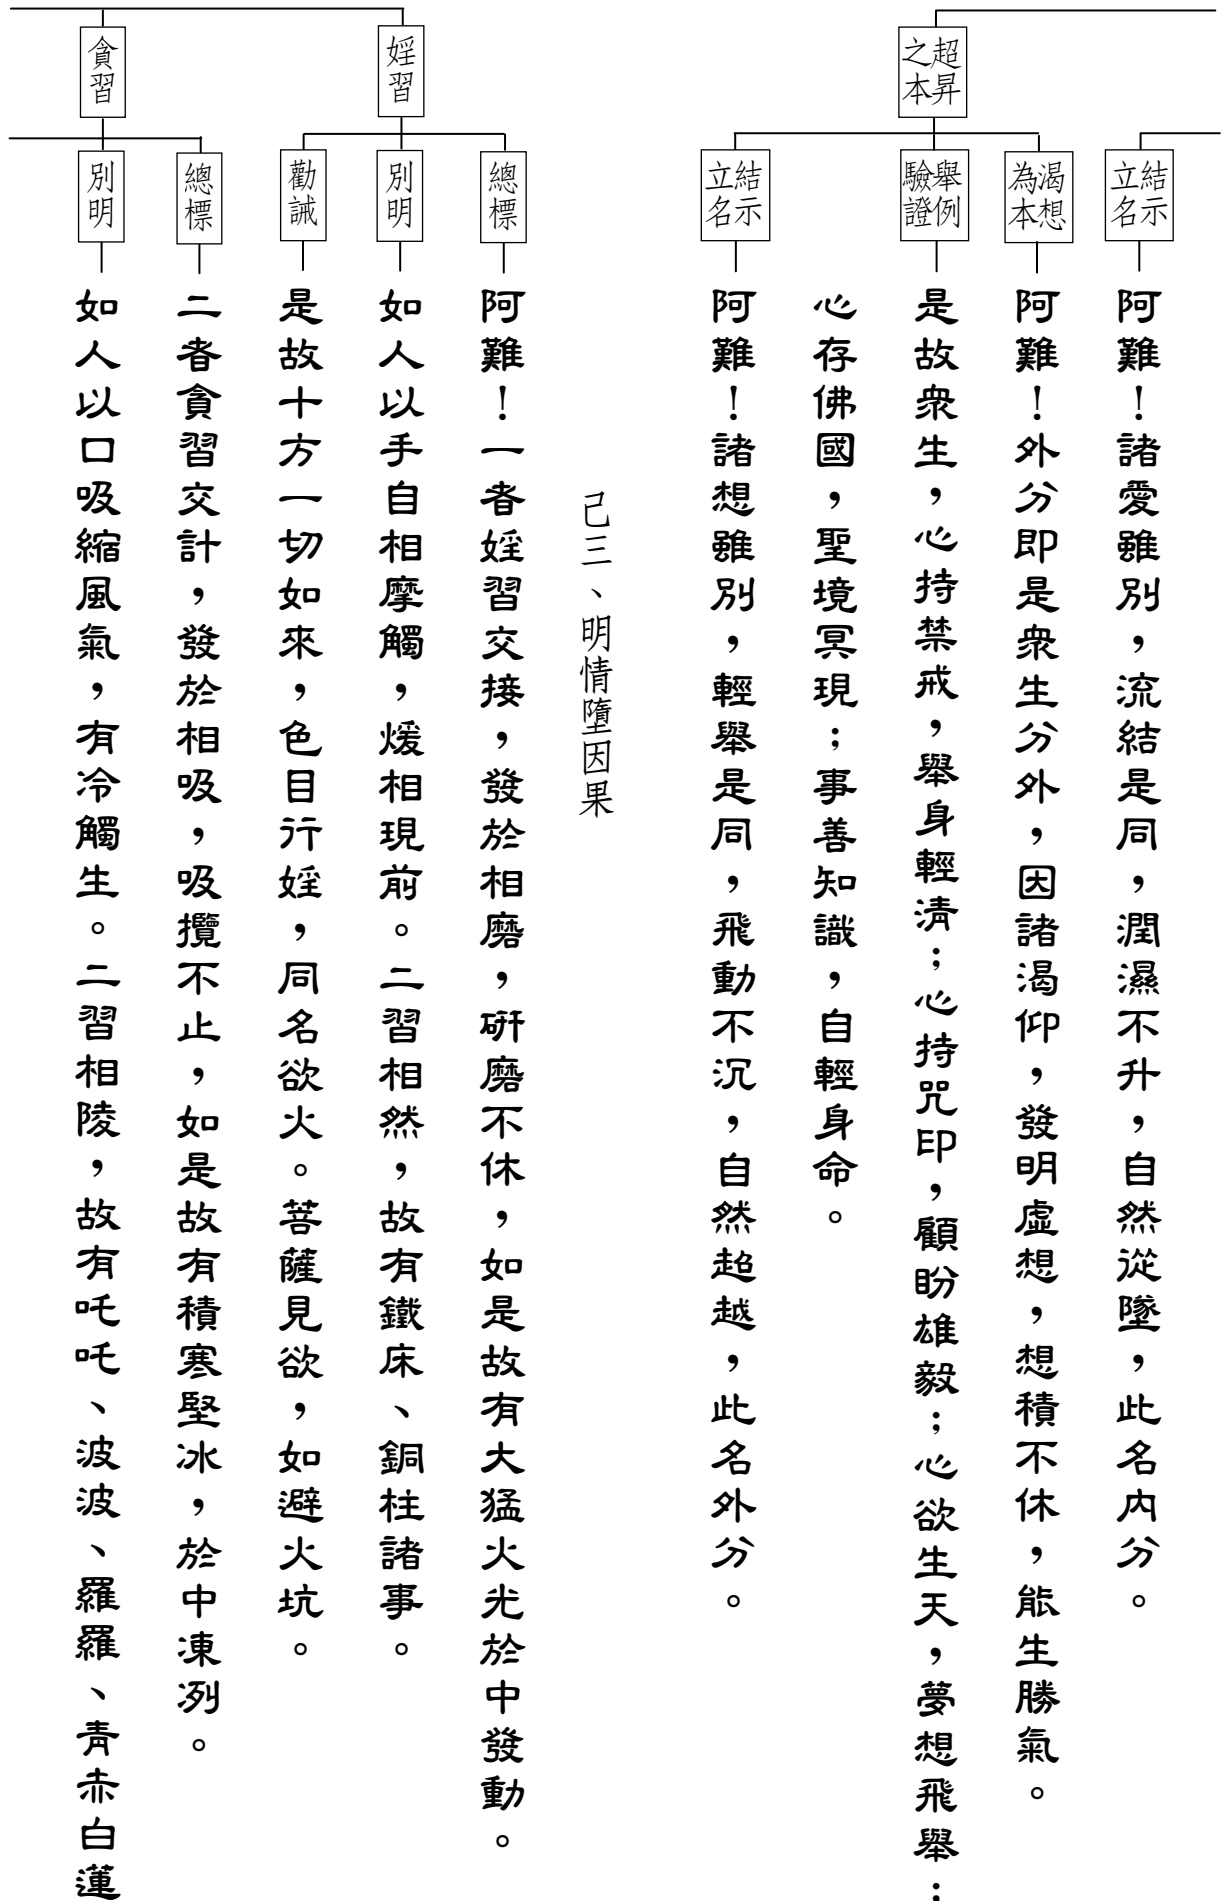 結示立名
阿難！諸愛雖別，流結是同，潤濕不升，自然從墜，此名內分。
超昇之本
渴想為本
阿難！外分即是衆生分外，因諸渴仰，發明虛想，想積不休，能生勝氣。
舉例驗證
是故衆生，心持禁戒，舉身輕清；心持咒印，顧盼雄毅；心欲生天，夢想飛舉；
心存佛國，聖境冥現；事善知識，自輕身命。
結示立名
阿難！諸想雖別，輕舉是同，飛動不沉，自然超越，此名外分。
己三、明情墮因果
婬習
總標
阿難！一者婬習交接，發於相磨，研磨不休，如是故有大猛火光於中發動。
別明
如人以手自相摩觸，煖相現前。二習相然，故有鐵床、銅柱諸事。
勸誡
是故十方一切如來，色目行婬，同名欲火。菩薩見欲，如避火坑。
貪習
總標
二者貪習交計，發於相吸，吸攬不止，如是故有積寒堅冰，於中凍冽。
別明
如人以口吸縮風氣，有冷觸生。二習相陵，故有吒吒、波波、羅羅、青赤白蓮